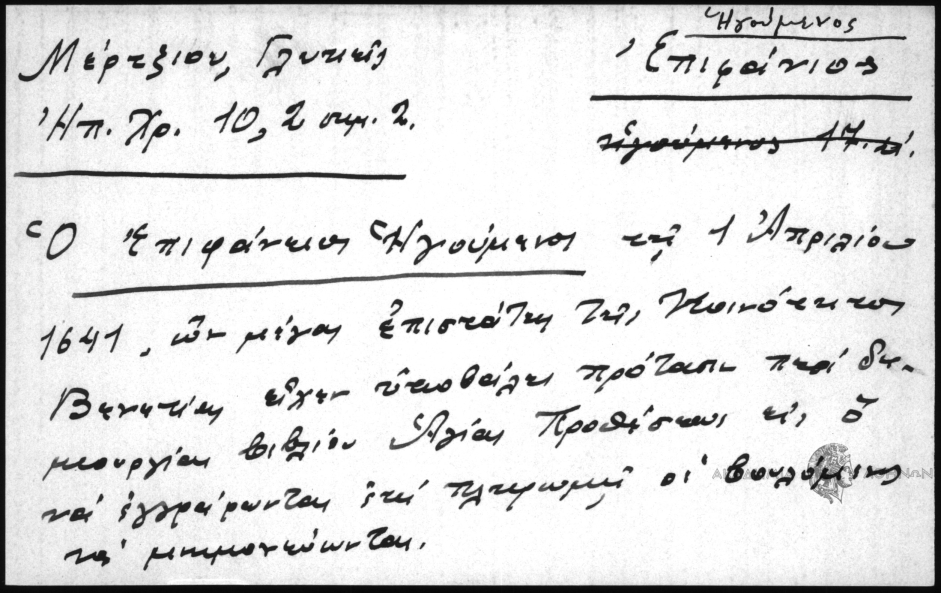 Ἡγούμενος
Ἐπιφάνιος
ἡγούμενος 17. αἰ.
Μέρτζιου, Γλυκεῖς
Ἠπ. Χρ. 10, 2 σημ. 2.
Ὁ Ἐπιφάνειος Ἡγούμενος τῇ 1 Ἀπριλίου
1641, ὢν μέγας ἐπιστάτης τῆς Κοινότητος
Βενετίας εἶχεν ὑποβάλει πρότασιν περὶ δη-
μιουργίας βιβλίου Ἁγίας Προθέσεως εἰς ὃ
νὰ ἐγγράφωνται ἐπὶ πληρωμῇ οἱ βουλόμενοι
νὰ μνημονεύωνται.